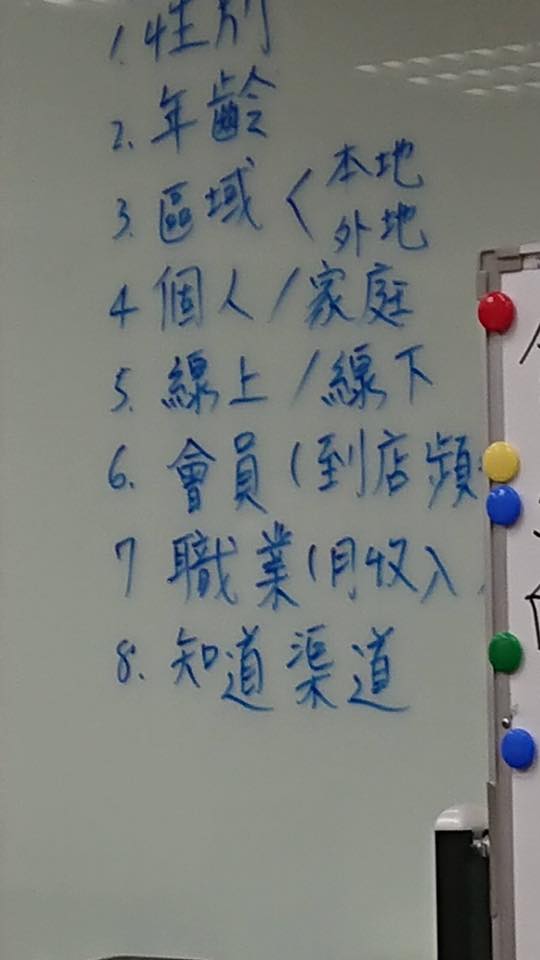 1. 性別
2. 年齡
3. 區域 < 本地
外地
4 個人/家庭
5. 線上/線下
6. 會員(到店頻
7 職業(月收入
8. 知道渠道